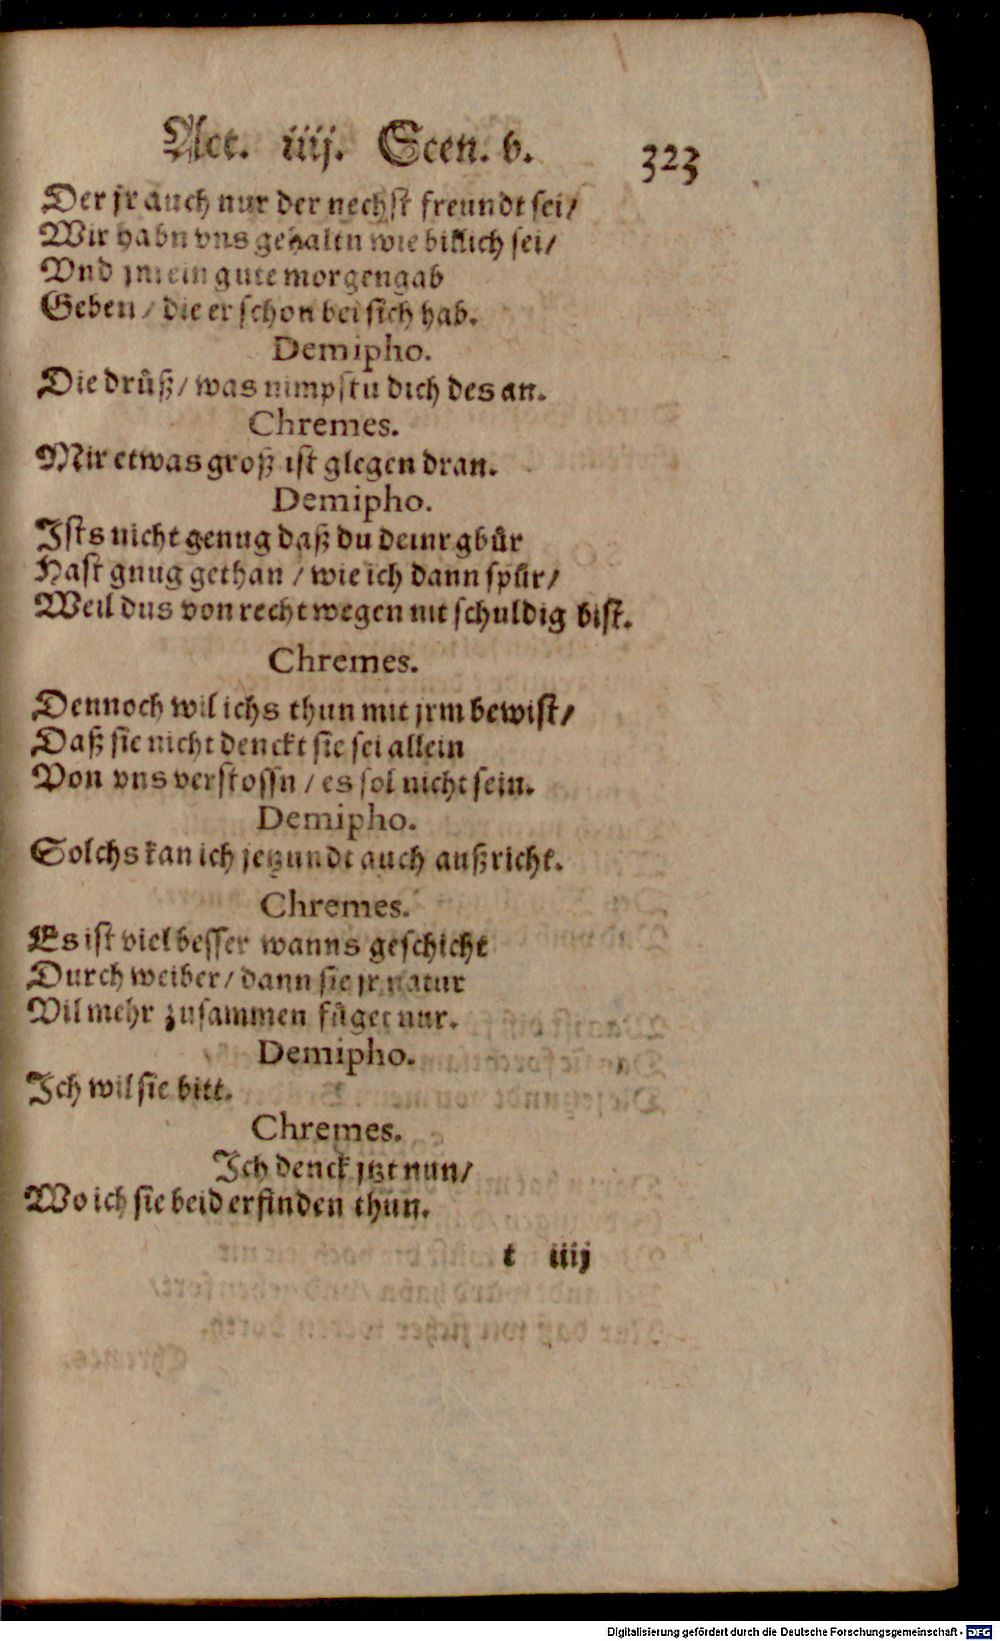 Act. iiij. Scen. v. 323
Der jr auch nur der nechst freundt sei/
Wir habn vns gehaltn wie billich sei/
Vnd jm ein gute morgengab
Geben / die er schon bei sich hab.
Demipho.
Die drüß/ was nimpstu dich des an.
Chremes.
Mir etwas groß ist glegen dran.
Demipho.
Ists nicht genug daß du deinr gbür
Hast gnug gethan / wie ich dann spür/
Weil dus von recht wegen nit schuldig bist.
Chremes.
Dennoch wil ichs thun mit jrm bewist/
Daß sie nicht denckt sie sei allein
Von vns verstossn / es sol nicht sein.
Demipho.
Solchs kan ich jetzundt auch außricht.
Chremes.
Es ist viel besser wanns geschicht
Durch weiber/ dann sie jr natur
Vil mehr zusammen füget nur.
Demipho.
Ich wil sie bitt.
Chremes.
Ich denck jtzt nun/
Wo ich sie beid erfinden thun.
t iiij
Digitalisierung gefördert durch die Deutsche Forschungsgemeinschaft - DFG